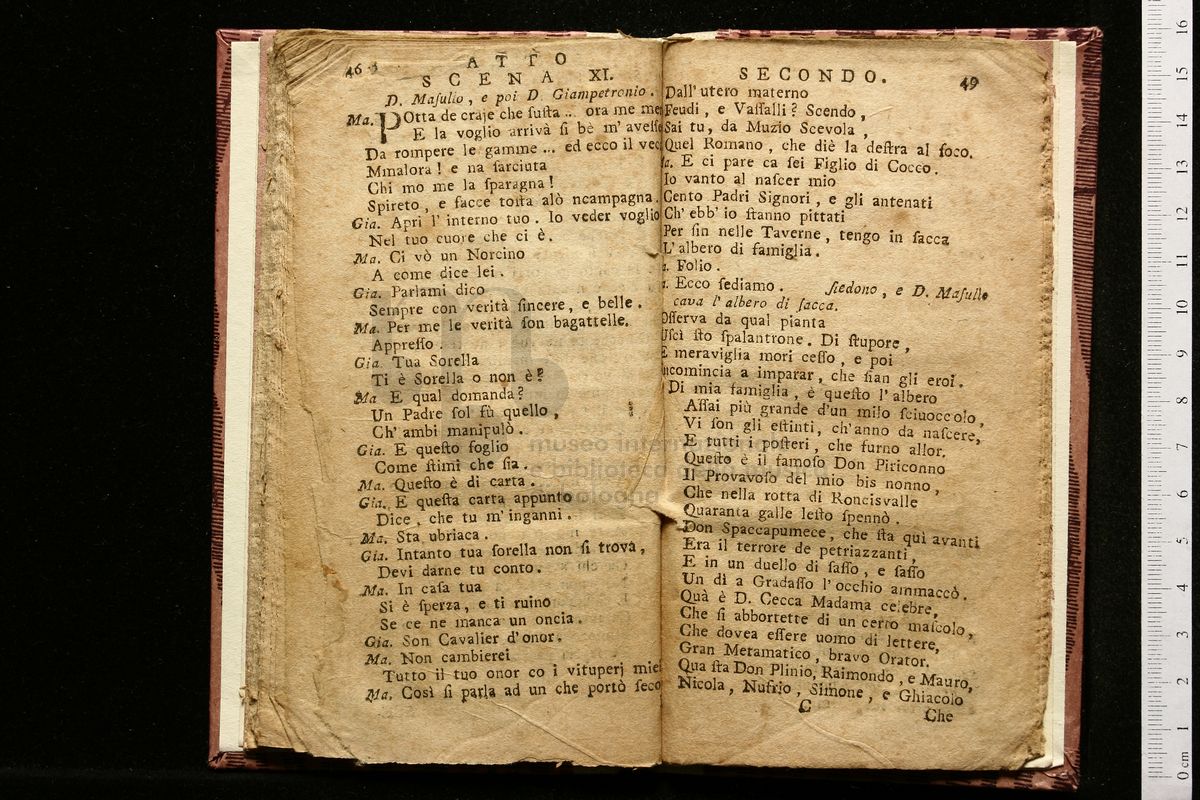 46
ATTO
SCENA XI.
D. Maſulio, e poi D Giampetronio.
Ma. POtta de craje che ſuſta ... ora me me
E la voglio arrivà ſi be m' aveſſe
Da rompere le gamme ... ed ecco il vec
Mmalora! e na ſarciuta
Chi mo me la ſparagna!
Spireto, e facce toſta alò ncampagna.
Gia. Apri l' interno tuo. Io veder voglio
Nel tuo cuore che ci è.
Ma. Ci vò un Norcino
A come dice lei.
Gia. Parlami dico
Sempre con verità ſincere, e belle.
Ma. Per me le verità ſon bagattelle.
Appreſſo.
Gia. Tua Sorella
Ti è Sorella o non è?
Ma E qual domanda?
Un Padre ſol fù quello,
Ch' ambi manipulò.
Gia. E queſto foglio
Come ſtimi che ſia.
Ma. Queſto è di carta.
Gia. E queſta carta appunto
Dice, che tu m' inganni.
Ma. Sta ubriaca.
Gia. Intanto tua ſorella non ſi trova,
Devi darne tu conto.
Ma. In caſa tua
Si è ſperza, e ti ruino
Se ce ne manca un oncia.
Gia. Son Cavalier d'onor.
Ma. Non cambierei
Tutto il tuo onor co i vituperj miei
Ma. Così ſi parla ad un che portò ſeco
SECONDO.
49
Dall' utero materno
Feudi, e Vaſſalli? Scendo,
Sai tu, da Muzio Scevola,
Quel Romano, che diè la deſtra al foco.
a. E ci pare ca ſei Figlio di Cocco.
Io vanto al naſcer mio
Cento Padri Signori, e gli antenati
Ch' ebb' io ſtanno pittati
Per ſin nelle Taverne, tengo in ſacca
L' albero di famiglia.
a. Folio.
a. Ecco ſediamo. ſiedono, e D. Maſullo
cava l' albero di ſacca.
Oſſerva da qual pianta
Uſcì ſto ſpalantrone. Di ſtupore,
E meraviglia mori ceſſo, e poi
ncomincia a imparar, che ſian gli eroi.
Di mia famiglia, è queſto l' albero
Aſſai più grande d'un milo ſciuoccolo,
Vi ſon gli eſtinti, ch'anno da naſcere,
E tutti i poſteri, che furno allor.
Queſto è il famoſo Don Piriconno
Il Provavoſo del mio bis nonno,
Che nella rotta di Roncisvalle
Quaranta galle leſto ſpennò.
Don Spaccapumece, che ſta qui avanti
Era il terrore de petriazzanti,
E in un duello di ſaſſo, e ſaſſo
Un dì a Gradaſſo l' occhio ammaccò.
Quà è D. Cecca Madama celebre,
Che ſi abbortette di un cerro maſcolo,
Che dovea eſſere uomo di lettere,
Gran Metamatico, bravo Orator.
Qua ſta Don Plinio, Raimondo, e Mauro,
Nicola, Nufrio, Simone, e Ghiacolo
C
Che